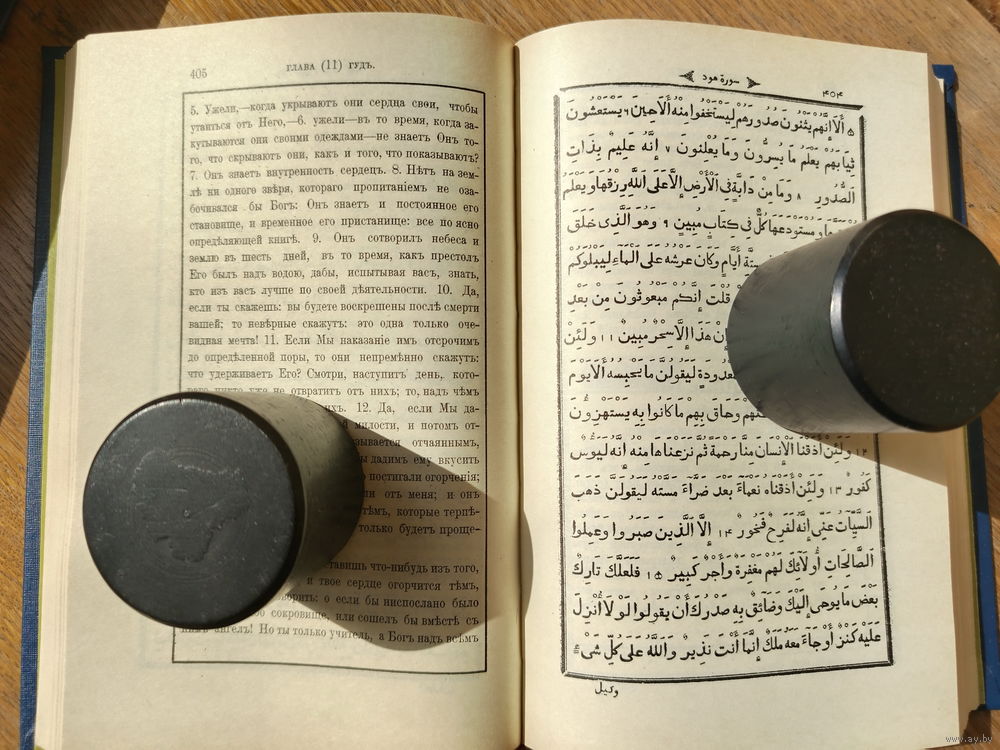 405
ГЛАВА (11) ГУДЪ.
5. Ужели,—когда укрываютъ они сердца свои, чтобы
утаиться отъ Него,—6. ужели—въ то время, когда за-
кутываются они своими одеждами—не знаетъ Онъ то-
го, что скрываютъ они, какъ и того, что показываютъ?
7. Онъ знаетъ внутренность сердецъ. 8. Нѣтъ на зем-
лѣ ни одного звѣря, котораго пропитаніемъ не оза-
бочивался бы Богъ: Онъ знаетъ и постоянное его
становище, и временное его пристанище: все по ясно
опредѣляющей книгѣ. 9. Онъ сотворилъ небеса и
землю въ шесть дней, въ то время, какъ престолъ
Его былъ надъ водою, дабы, испытывая васъ, знать,
кто изъ васъ лучше по своей дѣятельности. 10. Да,
если ты скажешь: вы будете воскрешены послѣ смерти
вашей; то невѣрные скажутъ: это одна только оче-
видная мечта! 11. Если Мы наказаніе имъ отсрочимъ
до опредѣленной поры, то они непремѣнно скажутъ:
что удерживаетъ Его? Смотри, наступитъ день, кото-
никто уже не отвратитъ отъ нихъ; то, надъ чѣмъ
12. Да, если Мы да-
милости, и потомъ от-
отчаяннымъ,
дадимъ ему вкусить
постигали огорченія;
отъ меня; и онъ
которые терпѣ-
только будетъ проще-
что-нибудь изъ того,
и твое сердце огорчится тѣмъ,
о если бы ниспослано было
сокровище, или сошелъ бы вмѣстѣ съ
ангелъ! Но ты только учитель, а Богъ надъ всѣмъ
سورة هود
۴۰۴
۵ أَلَا إِنَّهُمْ يَثْنُونَ صُدُورَهُمْ لِيَسْتَخْفُوا مِنْهُ أَلَا حِينَ ۶ يَسْتَغْشُونَ
ثِيَابَهُمْ يَعْلَمُ مَا يُسِرُّونَ وَمَا يُعْلِنُونَ ۷ إِنَّهُ عَلِيمٌ بِذَاتِ
الصُّدُورِ ۸ وَمَا مِنْ دَابَّةٍ فِي الْأَرْضِ إِلَّا عَلَى اللَّهِ رِزْقُهَا وَيَعْلَمُ
وَمُسْتَوْدَعَهَا كُلٌّ فِي كِتَابٍ مُبِينٍ ۹ وَهُوَ الَّذِي خَلَقَ
أَيَّامٍ وَكَانَ عَرْشُهُ عَلَى الْمَاءِ لِيَبْلُوَكُمْ
قُلْتَ إِنَّكُمْ مَبْعُوثُونَ مِنْ بَعْدِ
هَذَا إِلَّا سِحْرٌ مُبِينٌ ۱۱ وَلَئِنْ
لَيَقُولُنَّ مَا يَحْبِسُهُ أَلَا يَوْمَ
وَحَاقَ بِهِمْ مَا كَانُوا بِهِ يَسْتَهْزِؤُنَ
۱۲ وَلَئِنْ أَذَقْنَا الْإِنْسَانَ مِنَّا رَحْمَةً ثُمَّ نَزَعْنَاهَا مِنْهُ إِنَّهُ لَيَؤُسٌ
كَفُورٌ ۱۳ وَلَئِنْ أَذَقْنَاهُ نَعْمَاءَ بَعْدَ ضَرَّاءَ مَسَّتْهُ لَيَقُولَنَّ ذَهَبَ
السَّيِّآتُ عَنِّي إِنَّهُ لَفَرِحٌ فَخُورٌ ۱۴ إِلَّا الَّذِينَ صَبَرُوا وَعَمِلُوا
الصَّالِحَاتِ أُولَائِكَ لَهُمْ مَغْفِرَةٌ وَأَجْرٌ كَبِيرٌ ۱۵ فَلَعَلَّكَ تَارِكٌ
بَعْضَ مَا يُوحَى إِلَيْكَ وَضَائِقٌ بِهِ صَدْرُكَ أَنْ يَقُولُوا لَوْلَا أُنْزِلَ
عَلَيْهِ كَنْزٌ أَوْ جَاءَ مَعَهُ مَلَكٌ إِنَّمَا أَنْتَ نَذِيرٌ وَاللَّهُ عَلَى كُلِّ شَيْءٍ
وكيل
www.ay.by